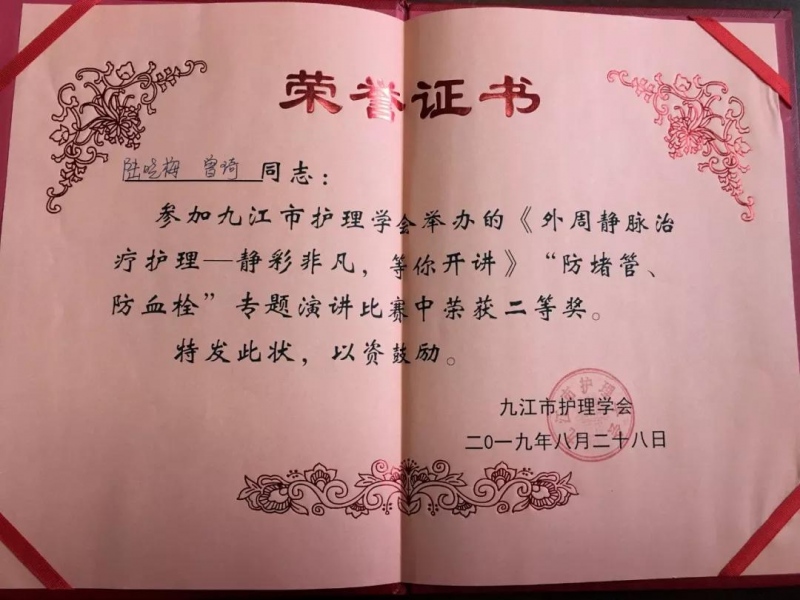 荣誉证书
陆晓梅 曾琦 同志：
参加九江市护理学会举办的《外周静脉治
疗护理—静彩非凡，等你开讲》“防堵管、
防血栓”专题演讲比赛中荣获二等奖。
特发此状，以资鼓励。
九江市护理学会
二0一九年八月二十八日